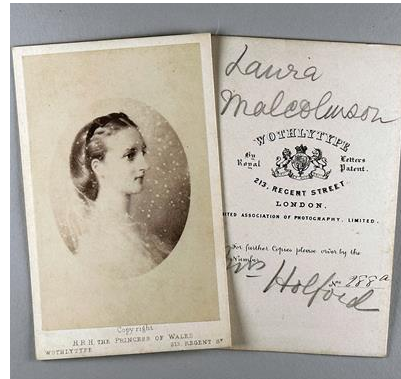 Copyright
H.R.H. THE PRINCESS OF WALES
WOTHLYTYPE 213 REGENT ST
Laura
Malcolmson
WOTHLYTYPE
By Royal Letters Patent.
213, REGENT STREET.
LONDON.
ITED ASSOCIATION OF PHOTOGRAPHY, LIMITED.
For further Copies please order by the
Number
No 288a
Holford